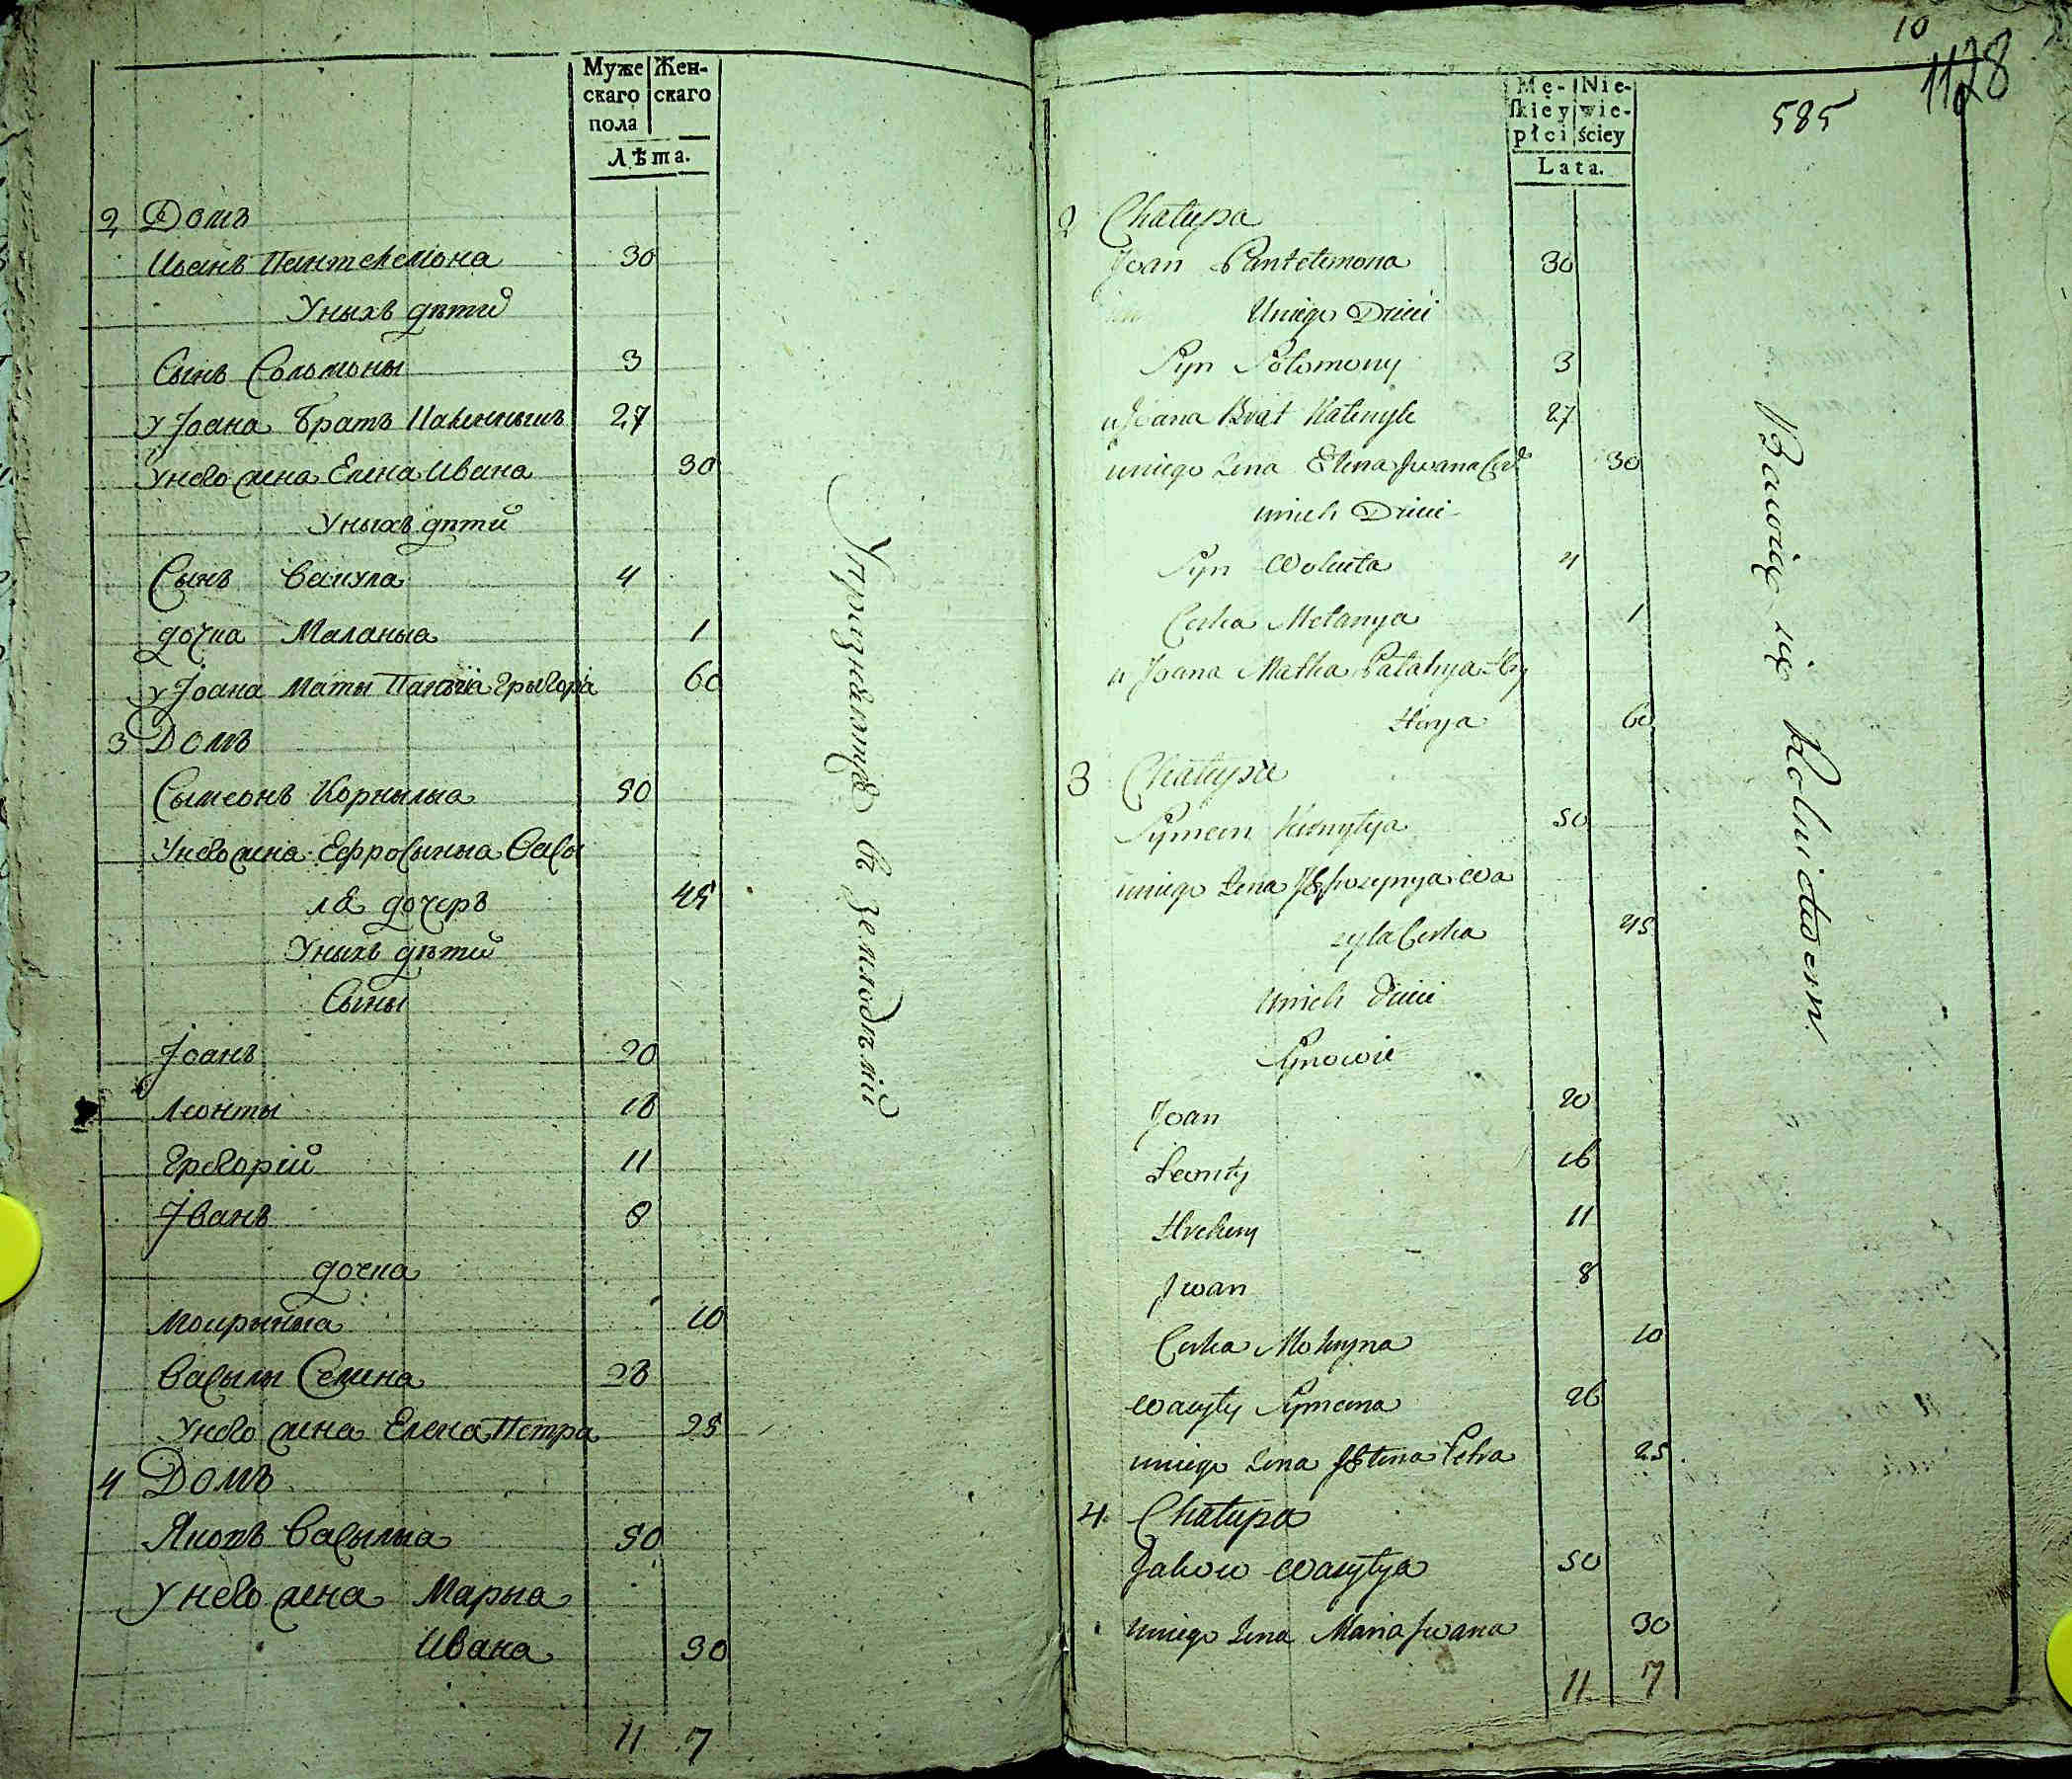 Муже Жен-
скаго скаго
пола
Лѣта.
2 Домъ
Иванъ Пантелемона 30
Уныхъ дѣти
Сынъ Соломоны 3
у Іоана Братъ 27
Унего жена Елена Ивана 30
Уныхъ дѣти
Сынъ Вакула 4
дочка Маланьа 1
у Іоана Мати Палагіа Григоріа 60
3 Домъ
Сымеонъ Корнылыа 50
Унего жена Ефросыныа Васы
ля дочеръ 45
Уныхъ дѣти
Сыны
Іоанъ 20
Леонты 16
Грегорій 11
Іванъ 8
дочка
Мокрыныа 10
Васылы Семена 26
Унего жена Елена Петра 25
4 Домъ
Якопъ Васылыа 50
Унего жена Марыа
Ивана 30
11 7
Упражняются въ земледѣліи
10
1178
585
Mę- Nie-
skiey wie-
płci ściey
Lata.
2 Chałupa
Joan Pantelemona 30
Uniego Dzieci
Syn Sołomony 3
u Joana Brat Kalenyk 27
uniego Żena Elena Jwana Cor 30
unich Dzieci
Syn Wokuła 4
Corka Melanya 1
u Joana Matka Palahya Hry
horya 60
3 Chałupa
Symeon Kornylya 50
uniego Żena Jefrozynya Wa
zyla Corka 45
Unich Dzieci
Synowie
Joan 20
Leonty 16
Hrehory 11
Jwan 8
Corka Mokryna 10
Wasyly Symeona 26
uniego Żena Jelena Petra 25
4. Chałupa
Jakow Wasylya 50
uniego Żena Maria Jwana 30
11 7
Bawią się Rolnictwem.